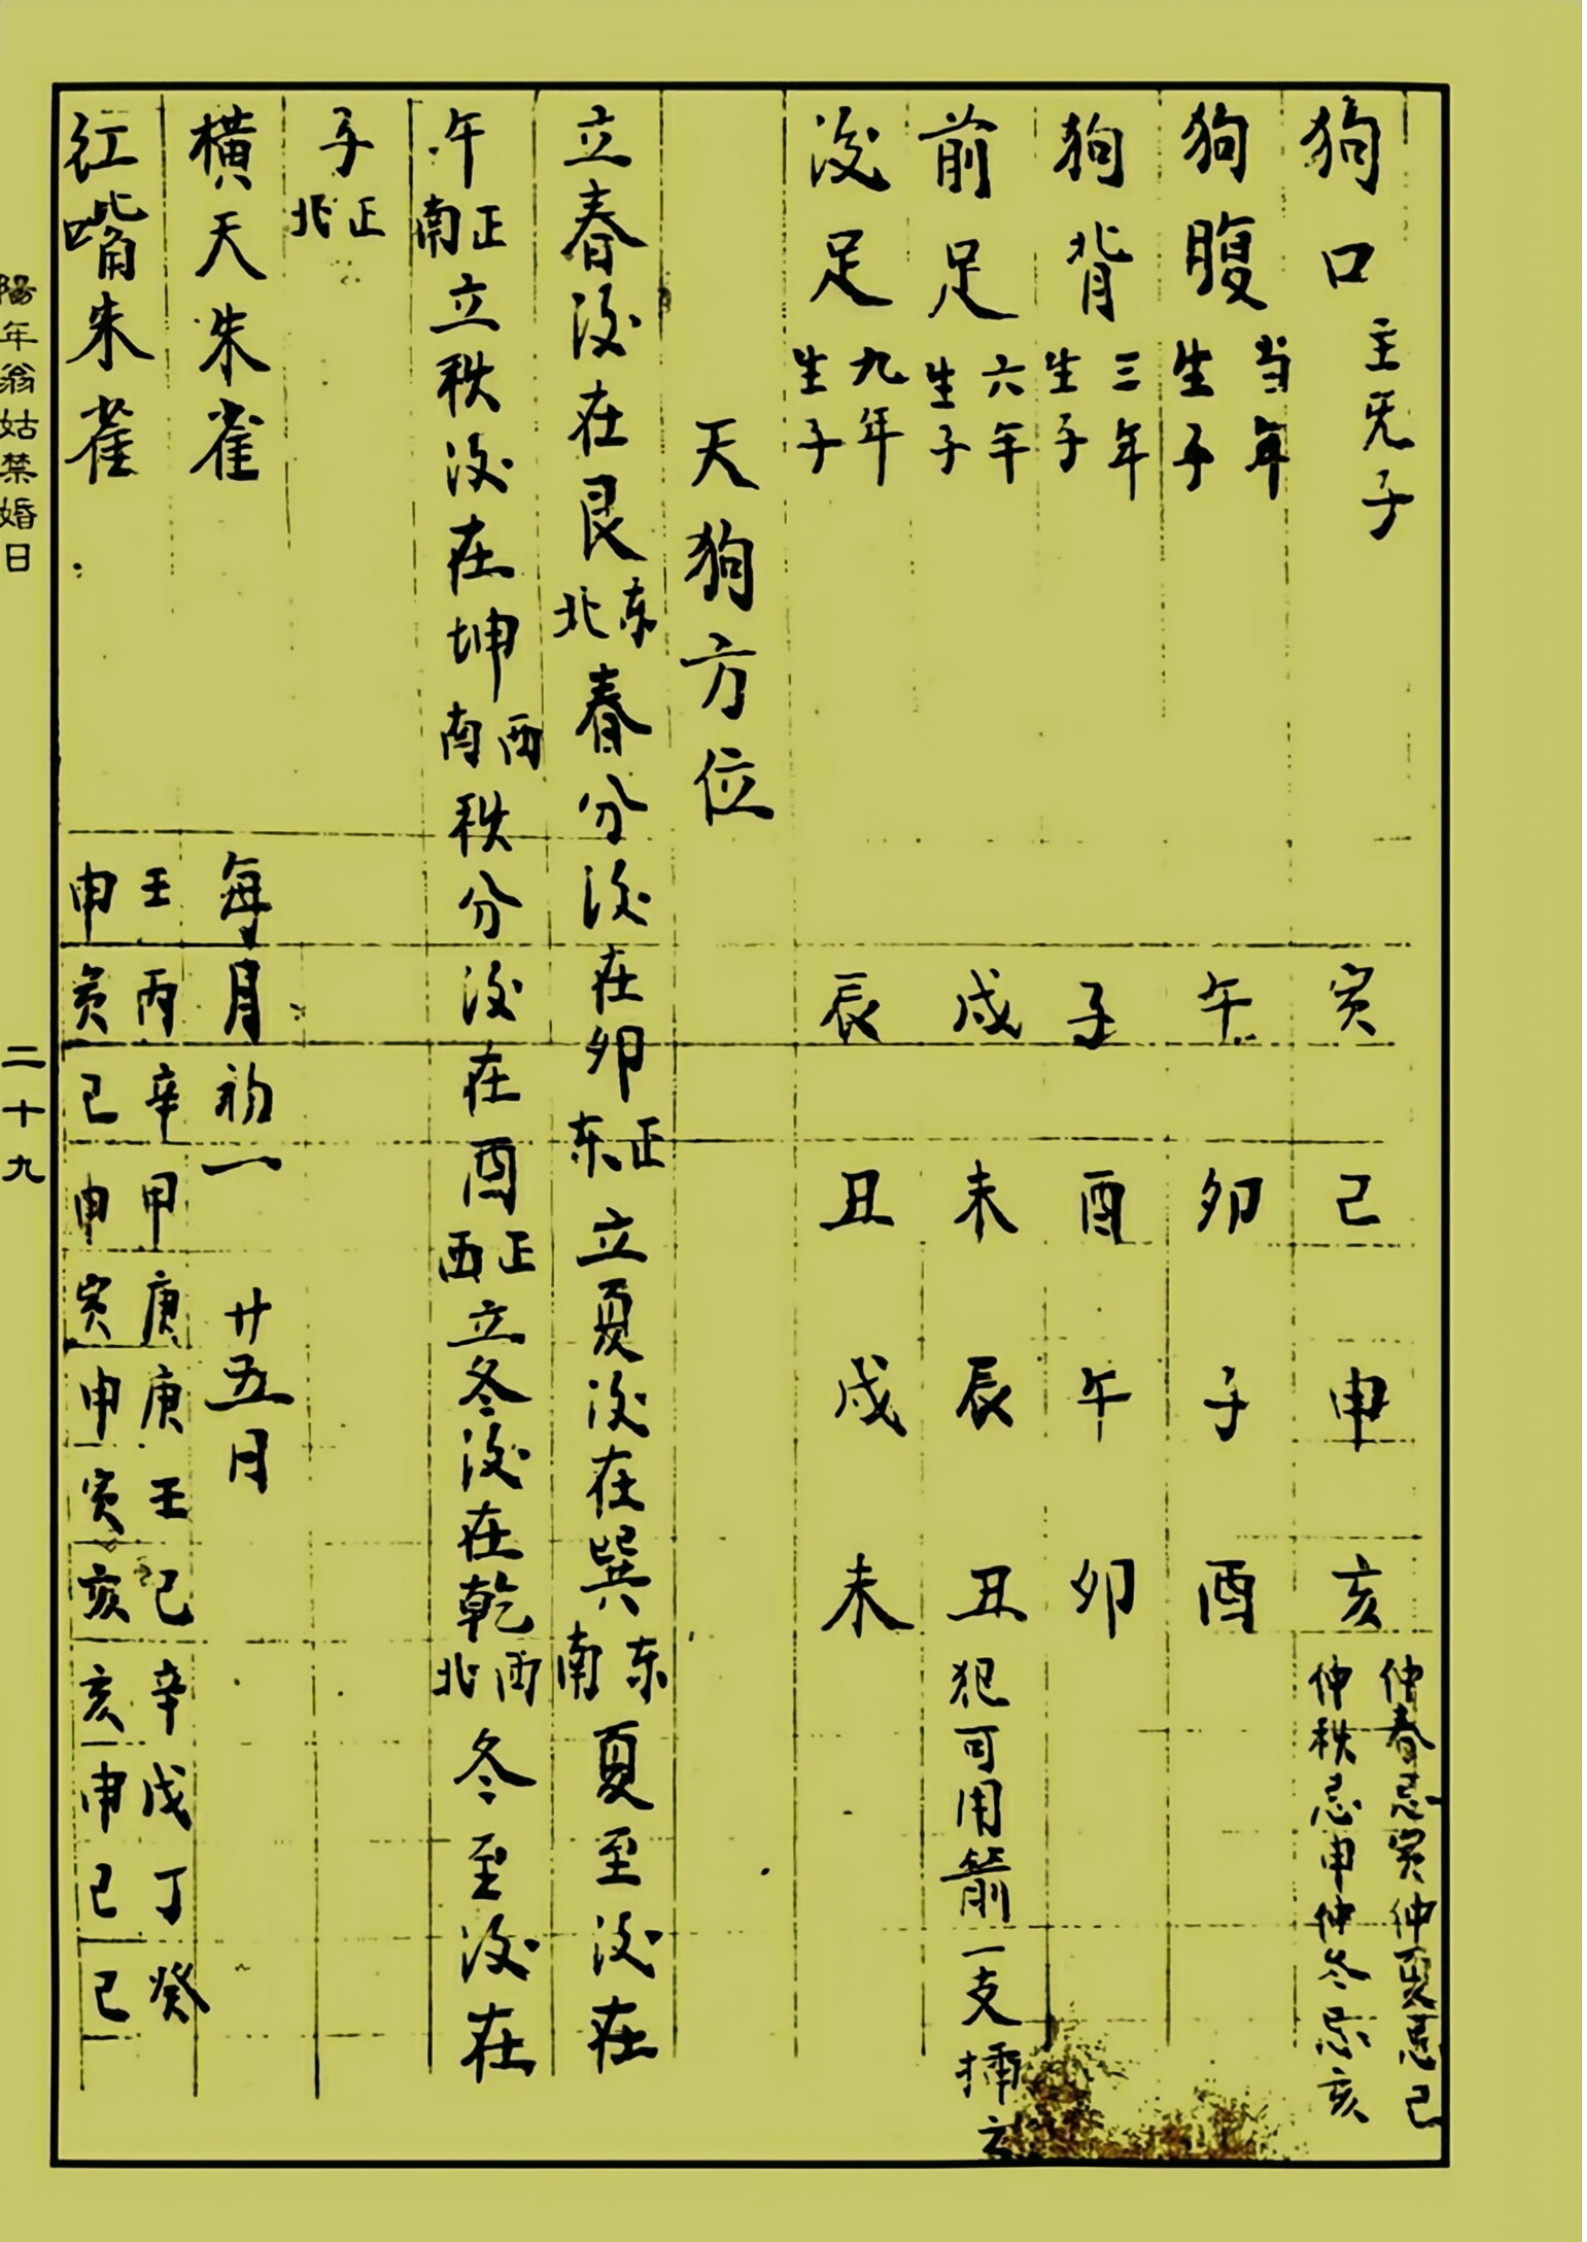 狗口主旡子 寅 己 申 亥 仲春忌寅仲夏忌己仲秩忌申仲冬忌亥
狗腹当年生子 午 卯 子 酉
狗背三年生子 子 酉 午 卯
前足六年生子 戌 未 辰 丑 犯可用箭一支插
后足九年生子 辰 丑 戌 未
天狗方位
立春后在艮东北春分后在卯正东立夏后在巽东南夏至后在
午正南立秩后在坤西南秩分后在酉正西立冬后在乾西北冬至后在
子正北
横天朱雀 每月初一 廿五日
红嘴朱雀 壬申 丙寅 辛己 甲申 庚寅 庚申 壬寅 己亥 辛亥 戊申 丁己 癸己
陽年翁姑禁婚日
二十九